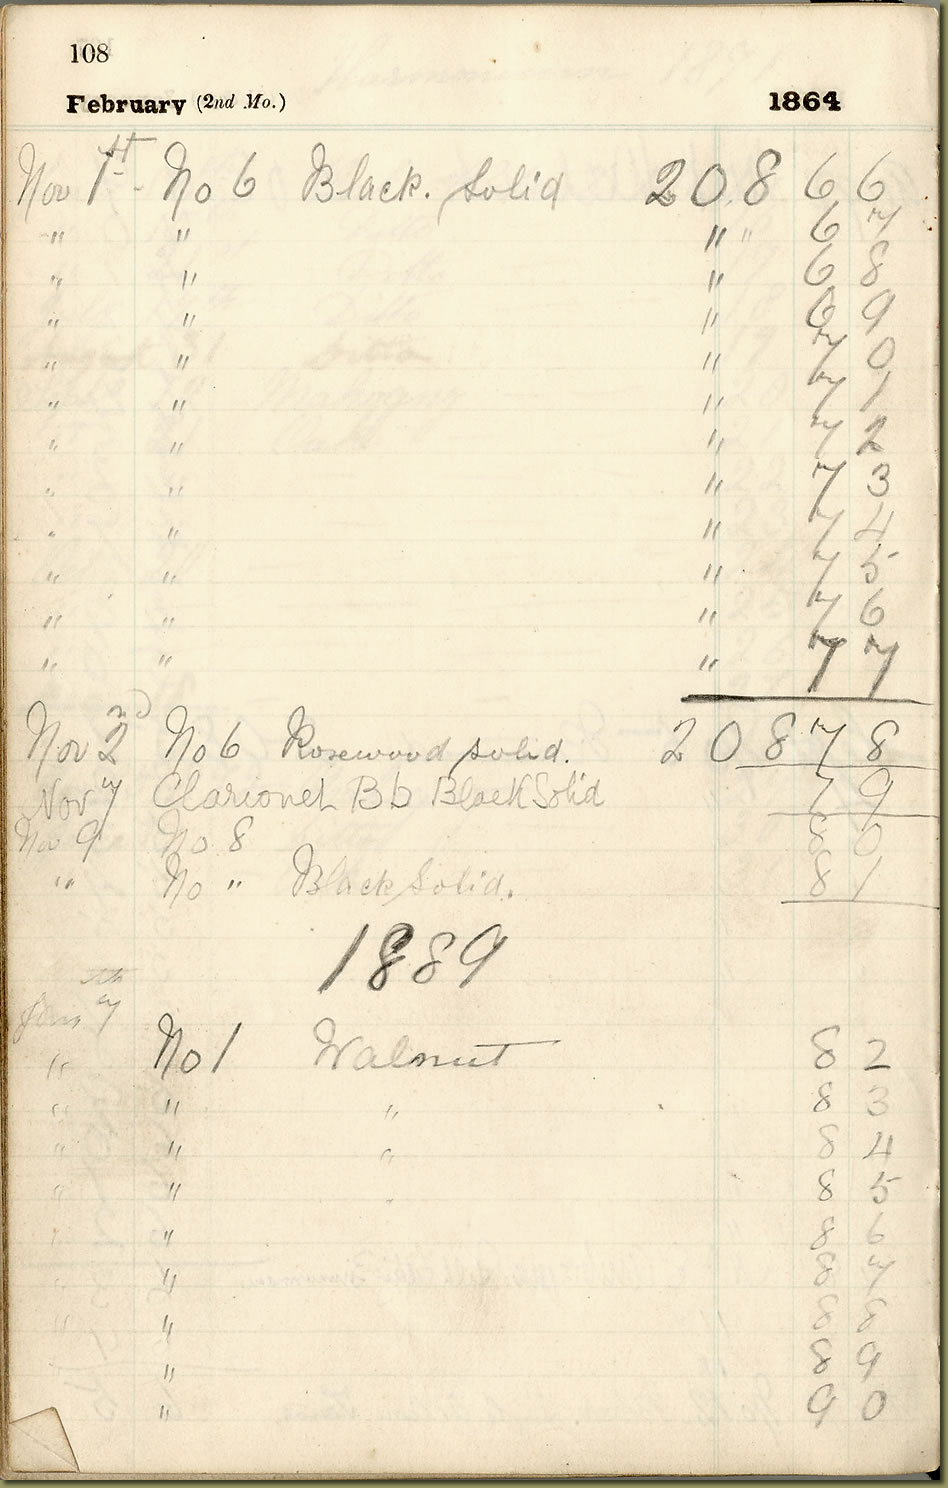 108
February (2nd Mo.) 1864
Nov 1st - No 6 Black. Solid 20,8 6 6
" " " " 6 7
" " " 6 8
" " " 6 9
" " " 7 0
" " " 7 1
" " " 7 2
" " " 7 3
" " " 7 4
" " " 7 5
" " " 7 6
" " " 7 7
Nov 2nd No 6 Rosewood solid. 20 8 7 8
Nov 7 Clarionet Bb Black Solid 7 9
Nov 9 No 8 8 0
" No " Black Solid. 8 1
1889
Jan 7th
" No 1 Walnut 8 2
" " " 8 3
" " " 8 4
" " 8 5
" " 8 6
" " 8 7
" " 8 8
" 8 9
" 9 0